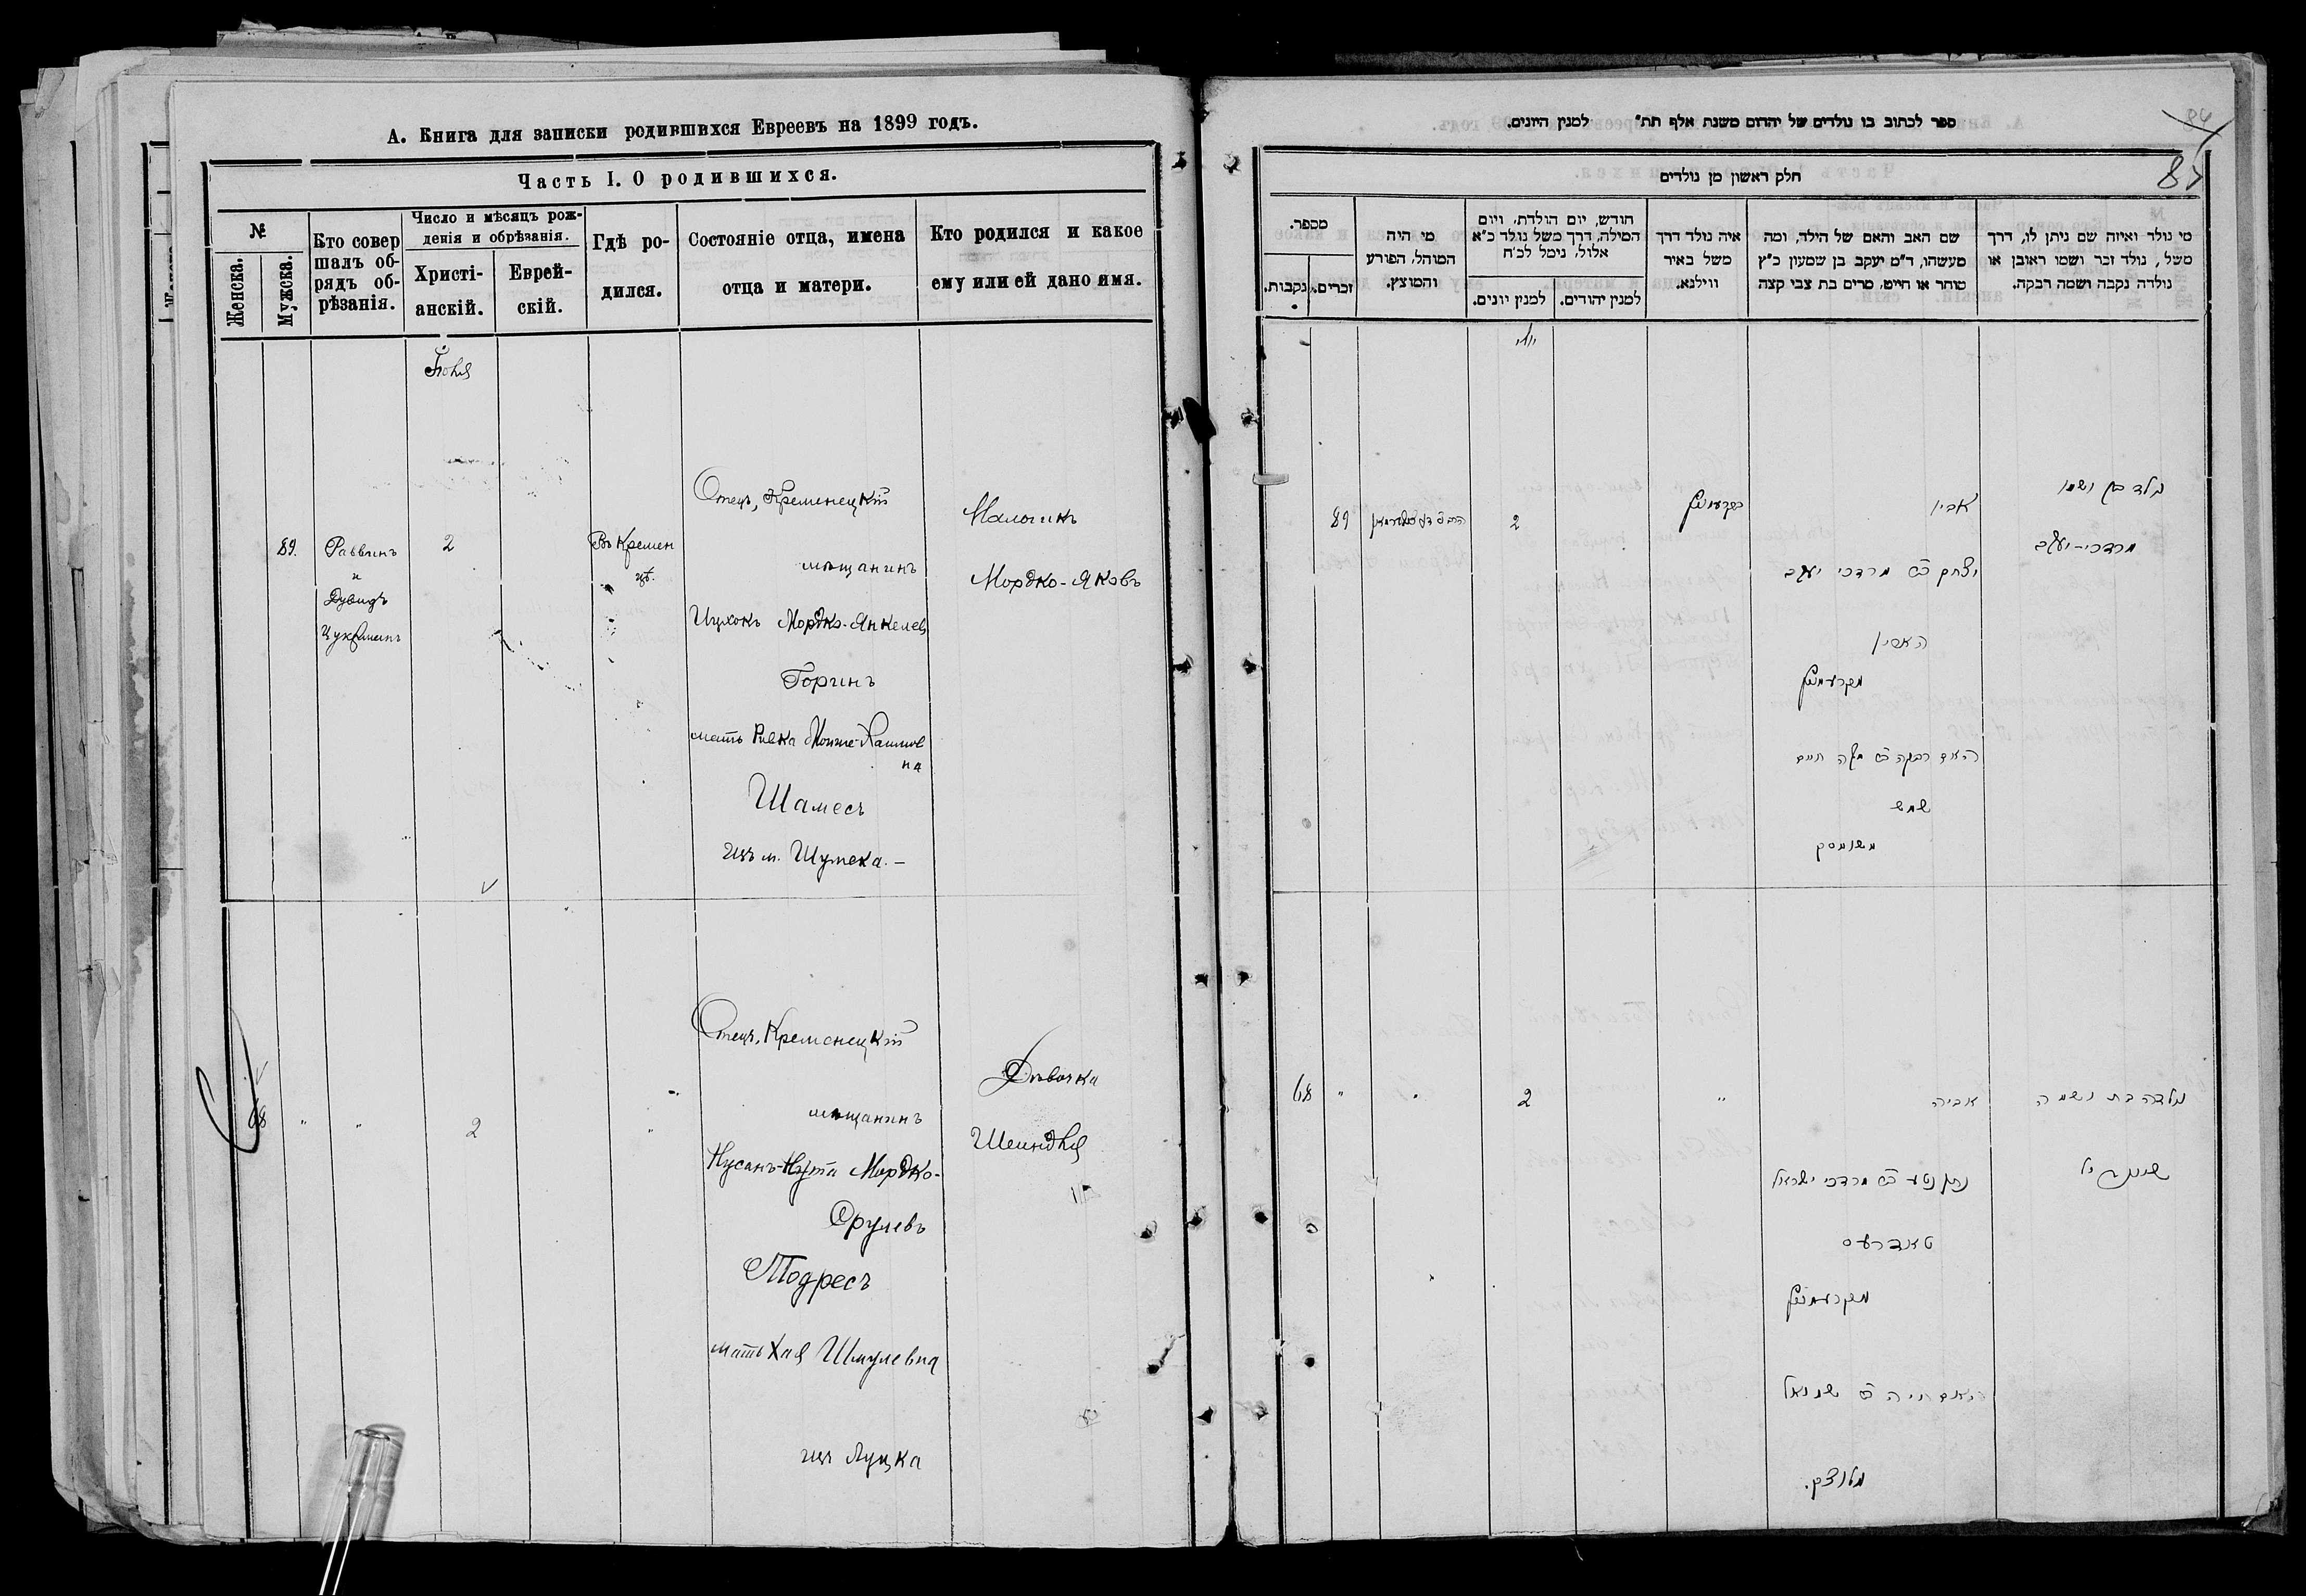 А. Книга для записки родившихся Евреевъ на 1899 годъ.
Часть I. О родившихся.
№
Женска.
Мужска.
Кто совер
шалъ об-
рядъ об-
рѣзанія.
Число и мѣсяцъ рож-
денія и обрѣзанія.
Христі-
анскій.
Еврей-
скій.
Гдѣ ро-
дился.
Состояніе отца, имена
отца и матери.
Кто родился и какое
ему или ей дано имя.
89.
Раввинъ
и
Дувидъ
Цукерманъ
2
Въ Кремен
цѣ.
Отецъ, Кременецкій
мѣщанинъ
Ицхокъ Мордко-Янкелев
Горинъ
мать Ривка Мошше-Хаимов
на
Шамесъ
изъ м. Шумска. —
Мальчикъ
Мордко-Яковъ
68
"
"
2
"
Отецъ, Кременецкій
мѣщанинъ
Нусанъ-Нута Мордко-
Срулевъ
Тодресъ
мать Хая Шмулевна
изъ Луцка
Дѣвочка
Шейндля
ספר לכתוב בו נולדים של יהדום משנת אלף תת" למנין היונים.
84
85
חלק ראשון מן נולדים
מספר.
זכרים.
נקבות.
מי היה
המוהל, הפורע
והמוצץ.
חודש, יום הולדת, ויום
המילה, דרך משל נולד כ"א
אלול, נימל לכ"ח
למנין יונים.
למנין יהודים.
איה נולד דרך
משל באיר
ווילנא.
שם האב והאם של הילד, ומה
מעשהו, ד"מ יעקב בן שמעון כ"ץ
סוחר או חייט, מרים בת צבי קצה
מי נולד ואיזה שם ניתן לו, דרך
משל, נולד זכר ושמו ראובן או
נולדה נקבה ושמה רבקה.
יולי
89
2
בקרעמניץ
אביו
יצחק ב"ר מרדכי יעקב
הארין
מקרעמניץ
האם רבקה ב"ר משה חיים
שמש
משומסק
נולד בן ושמו
מרדכי-יעקב
68
"
"
2
"
אביה
נתן נטע ב"ר מרדכי ישראל
טאדרעס
מקרעמניץ
האם חיה ב"ר שמואל
מלוצק.
נולדה בת ושמה
שיינדיל